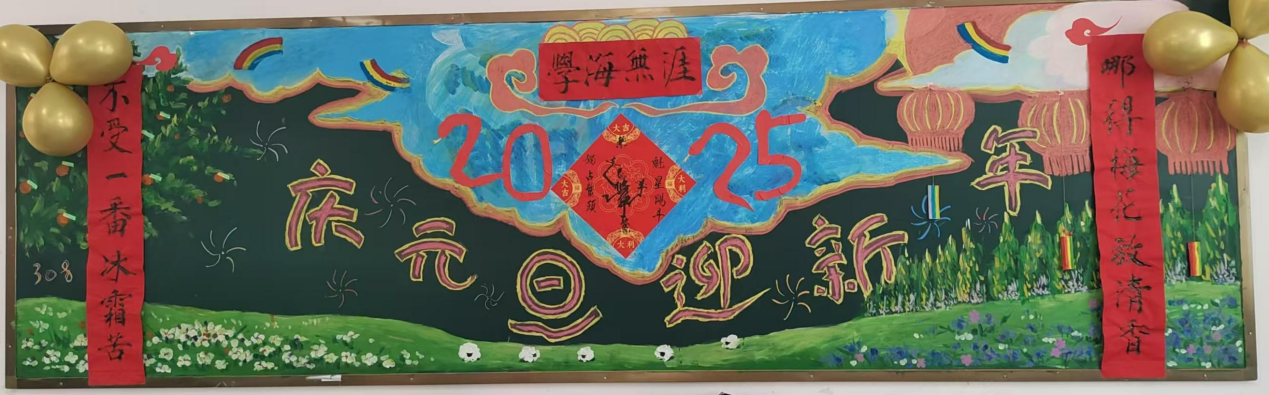 學海無涯
2025
大吉
大吉
大利
大利
魁星踢斗
庆元旦迎新年
不受一番冰霜苦
哪得梅花放清香
308